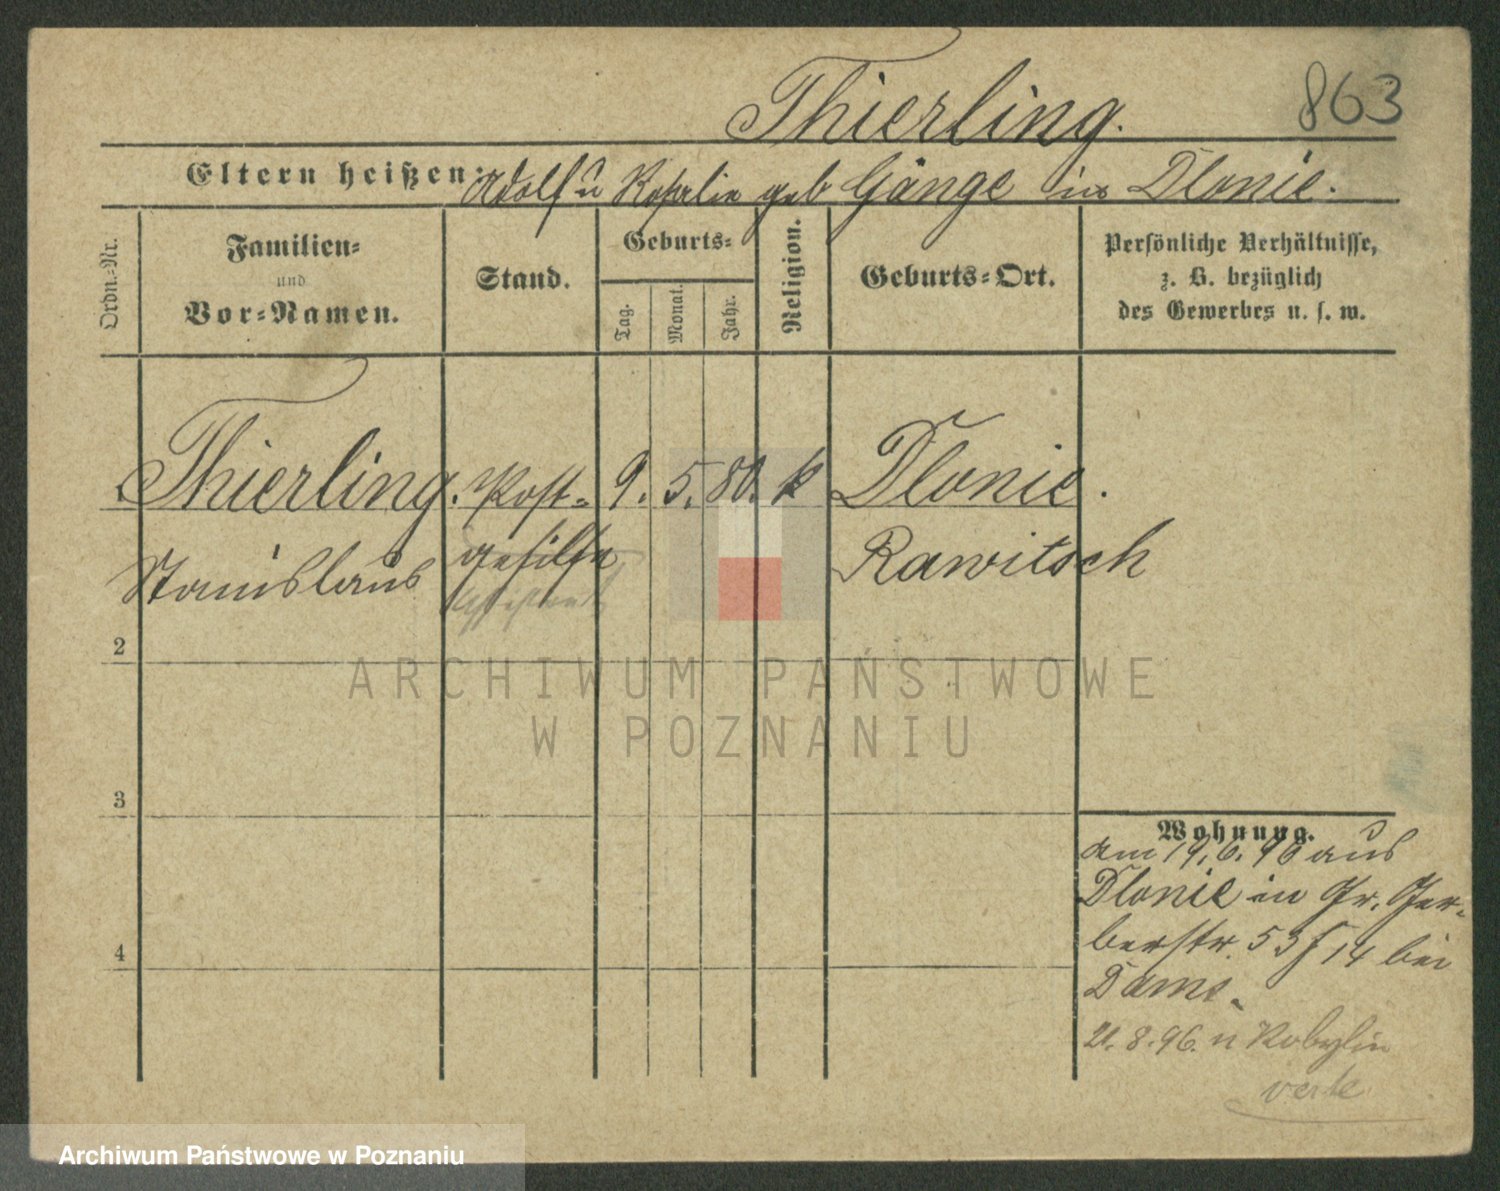 Thierling. 863
Eltern heißen: Adolf u Rosalie geb Gänge in Dlonie.
Ordn.-Nr.
Familien-
und
Vor-Namen.
Stand.
Geburts-
Tag.
Monat.
Jahr.
Religion.
Geburts-Ort.
Persönliche Verhältnisse,
z. B. bezüglich
des Gewerbes u. s. w.
Thierling. Post- 9. 5. 80. k Dlonie.
Stanislaus gehilfe Rawitsch
2
3
4
ARCHIWUM PAŃSTWOWE
W POZNANIU
Wohnung.
am 19.6.96 aus
Dlonie in Gr. Ger-
berstr. 53 14 bei
Dams.
21.8.96. n Kobylin
verte
Archiwum Państwowe w Poznaniu